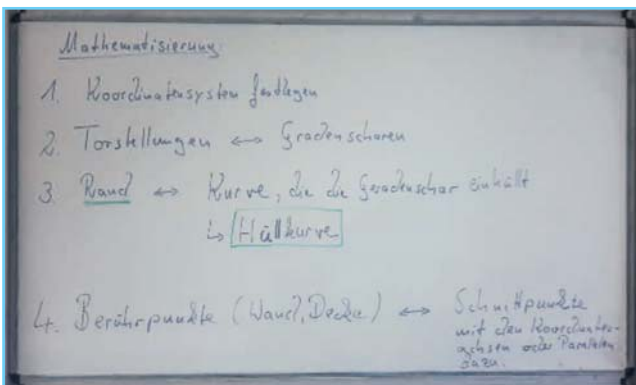 Mathematisierung
1. Koordinatensystem festlegen
2. Torstellungen ↔ Gradenscharen
3. Rand ↔ Kurve, die die Geradenschar einhüllt
↳ Hüllkurve
4. Berührpunkte (Wand, Decke) ↔ Schnittpunkte
mit den Koordinaten-
achsen oder Parallelen
dazu.